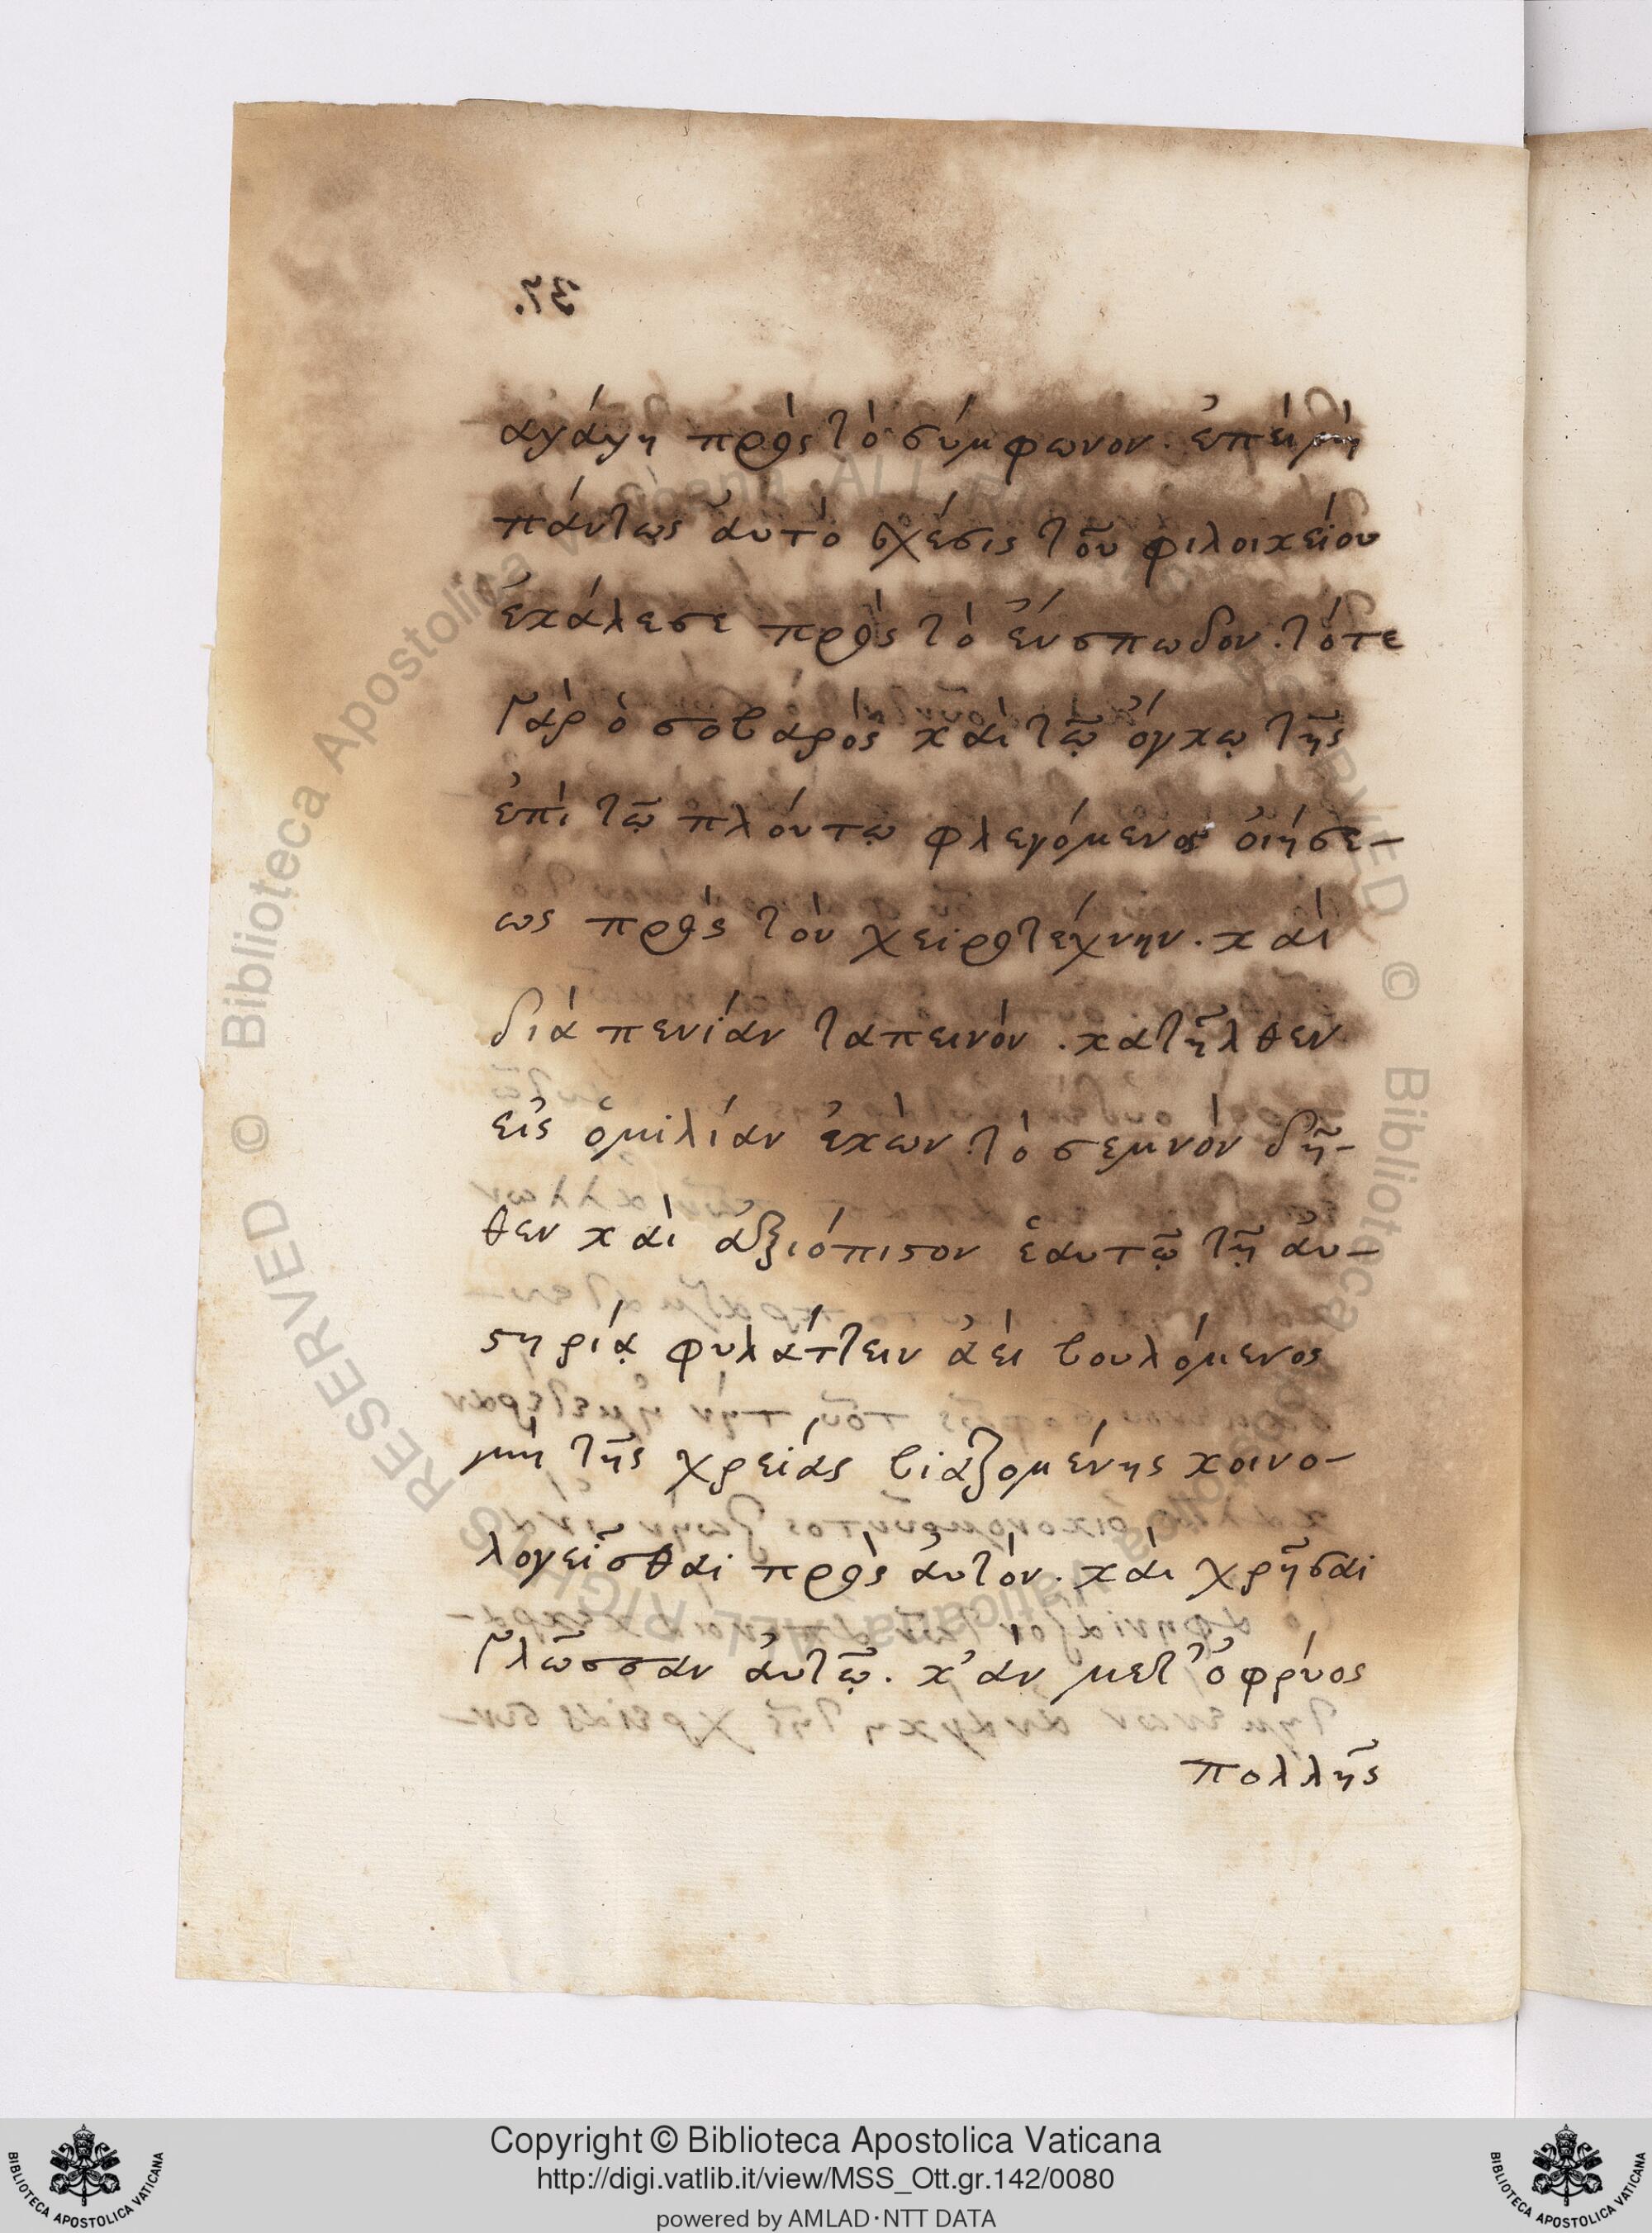 37.
αγάγη πρὸς τὸ σύμφωνον. ἐπεὶ μὴ
πάντως ἀυτὸ σχέσις τοῦ φιλοικείου
ἐκάλεσε πρὸς τὸ ἔνσπωδον. τότε
Γὰρ ὁ σοβαρὸς κὰι τῷ ὄγκῳ τῆς
ἐπὶ τῷ πλόυτῳ φλεγόμενος ὀιήσε-
ως πρὸς τὸν χειροτέχνην. κὰι
διὰ πενίαν ταπεινὸν. κατῆλθεν
εἰς ὁμιλίαν ἑκὼν. τὸ σεμνὸν δῆ-
θεν κὰι ἀξιόπιστον ἑαυτῷ τῇ ἀυ-
στηρίᾳ φυλάττειν ἀὲι βουλόμενος
μὴ τῆς χρείας βιαζομένης κοινο-
λογεῖσθαι πρὸς ἀυτὸν. κὰι χρῆσαι
Γλῶσσαν ἀυτῷ. κ'ἀν μετ' ὀφρύος
πολλῆς
Copyright © Biblioteca Apostolica Vaticana
http://digi.vatlib.it/view/MSS_Ott.gr.142/0080
powered by AMLAD·NTT DATA
BIBLIOTECA APOSTOLICA VATICANA
BIBLIOTECA APOSTOLICA VATICANA